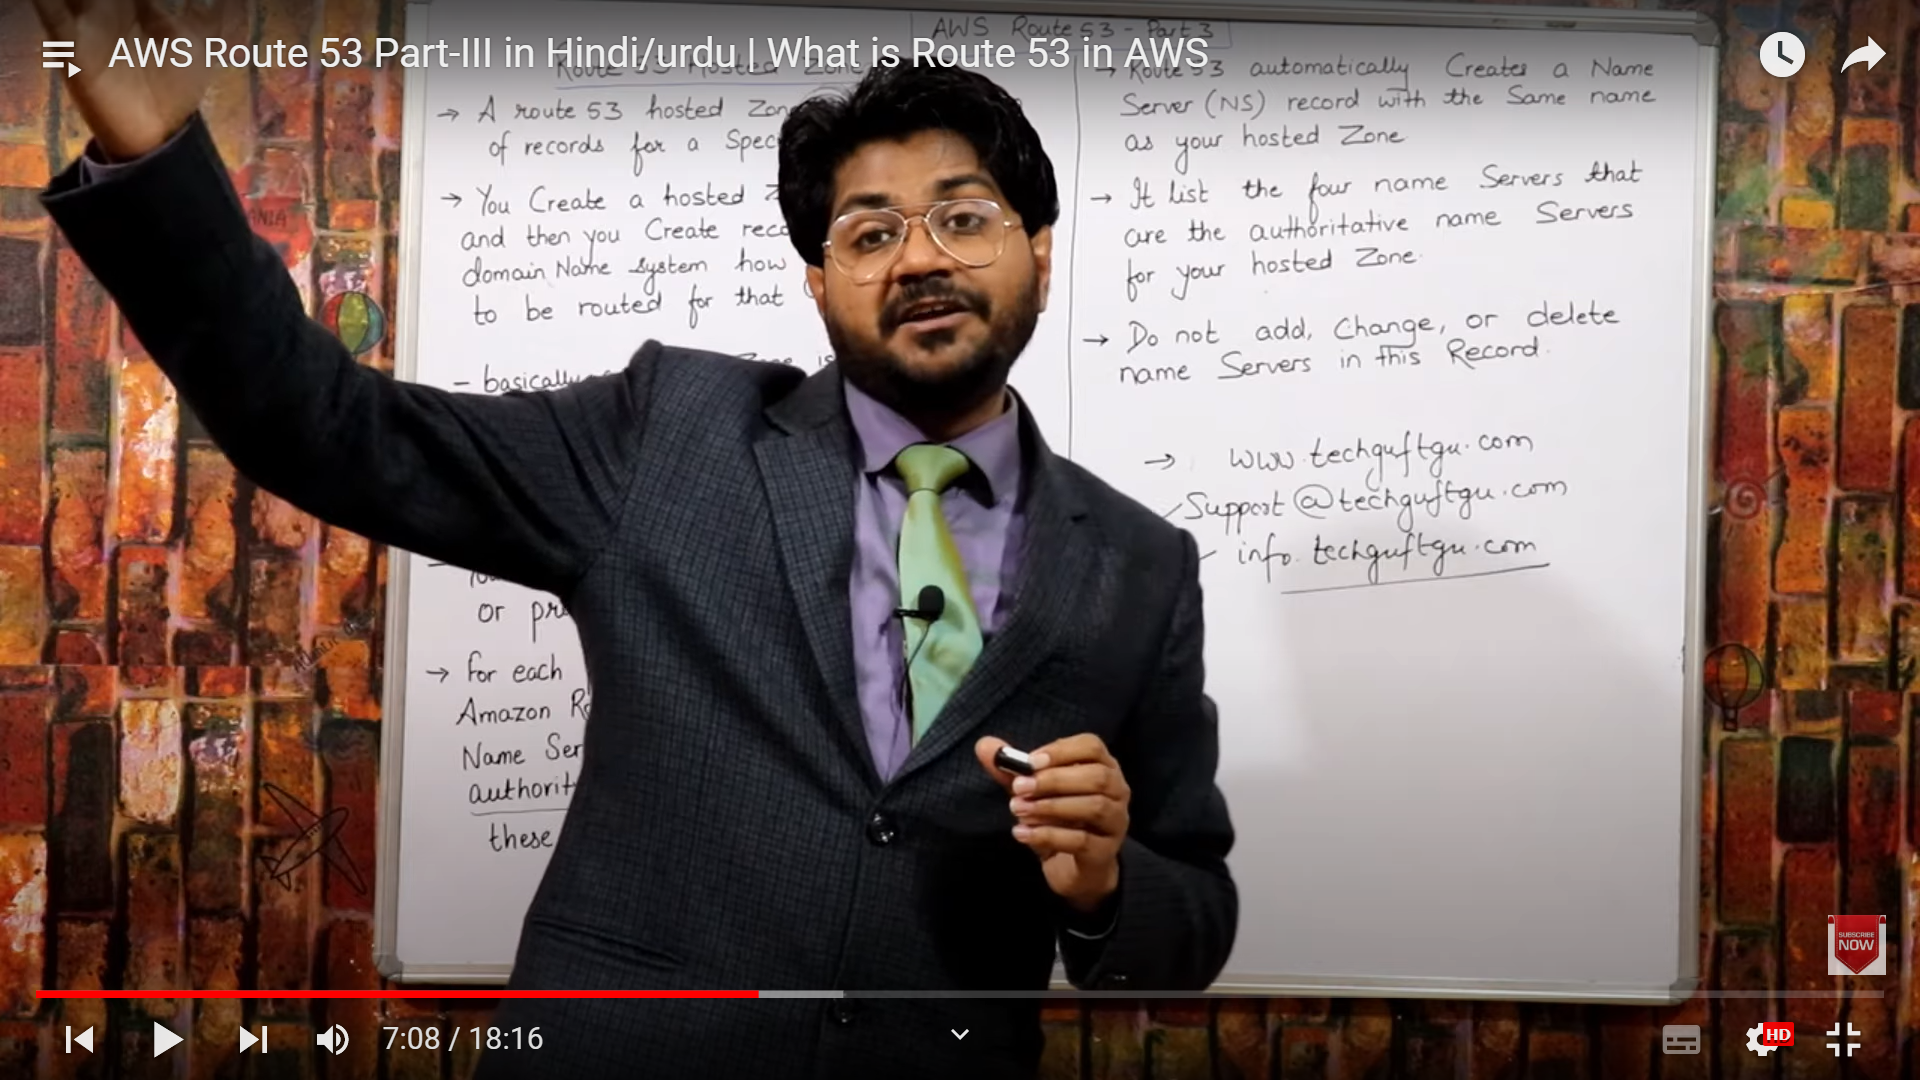 AWS Route 53 Part-III in Hindi/urdu | What is Route 53 in AWS
AWS Route 53 - Part 3
Route 53 Hosted Zone
→ A route 53 hosted Zon
of records for a Spec
→ You Create a hosted
and then you Create reco
domain Name system how
to be routed for that
- basically
or pr
→ for each
Amazon R
Name Ser
authorit
these
→ Route 53 automatically Creates a Name
Server (NS) record with the Same name
as your hosted Zone
→ It list the four name Servers that
are the authoritative name Servers
for your hosted Zone.
→ Do not add, Change, or delete
name Servers in this Record.
→ www.techguftgu.com
Support@techguftgu.com
info.techguftgu.com
SUBSCRIBE
NOW
7:08 / 18:16
HD